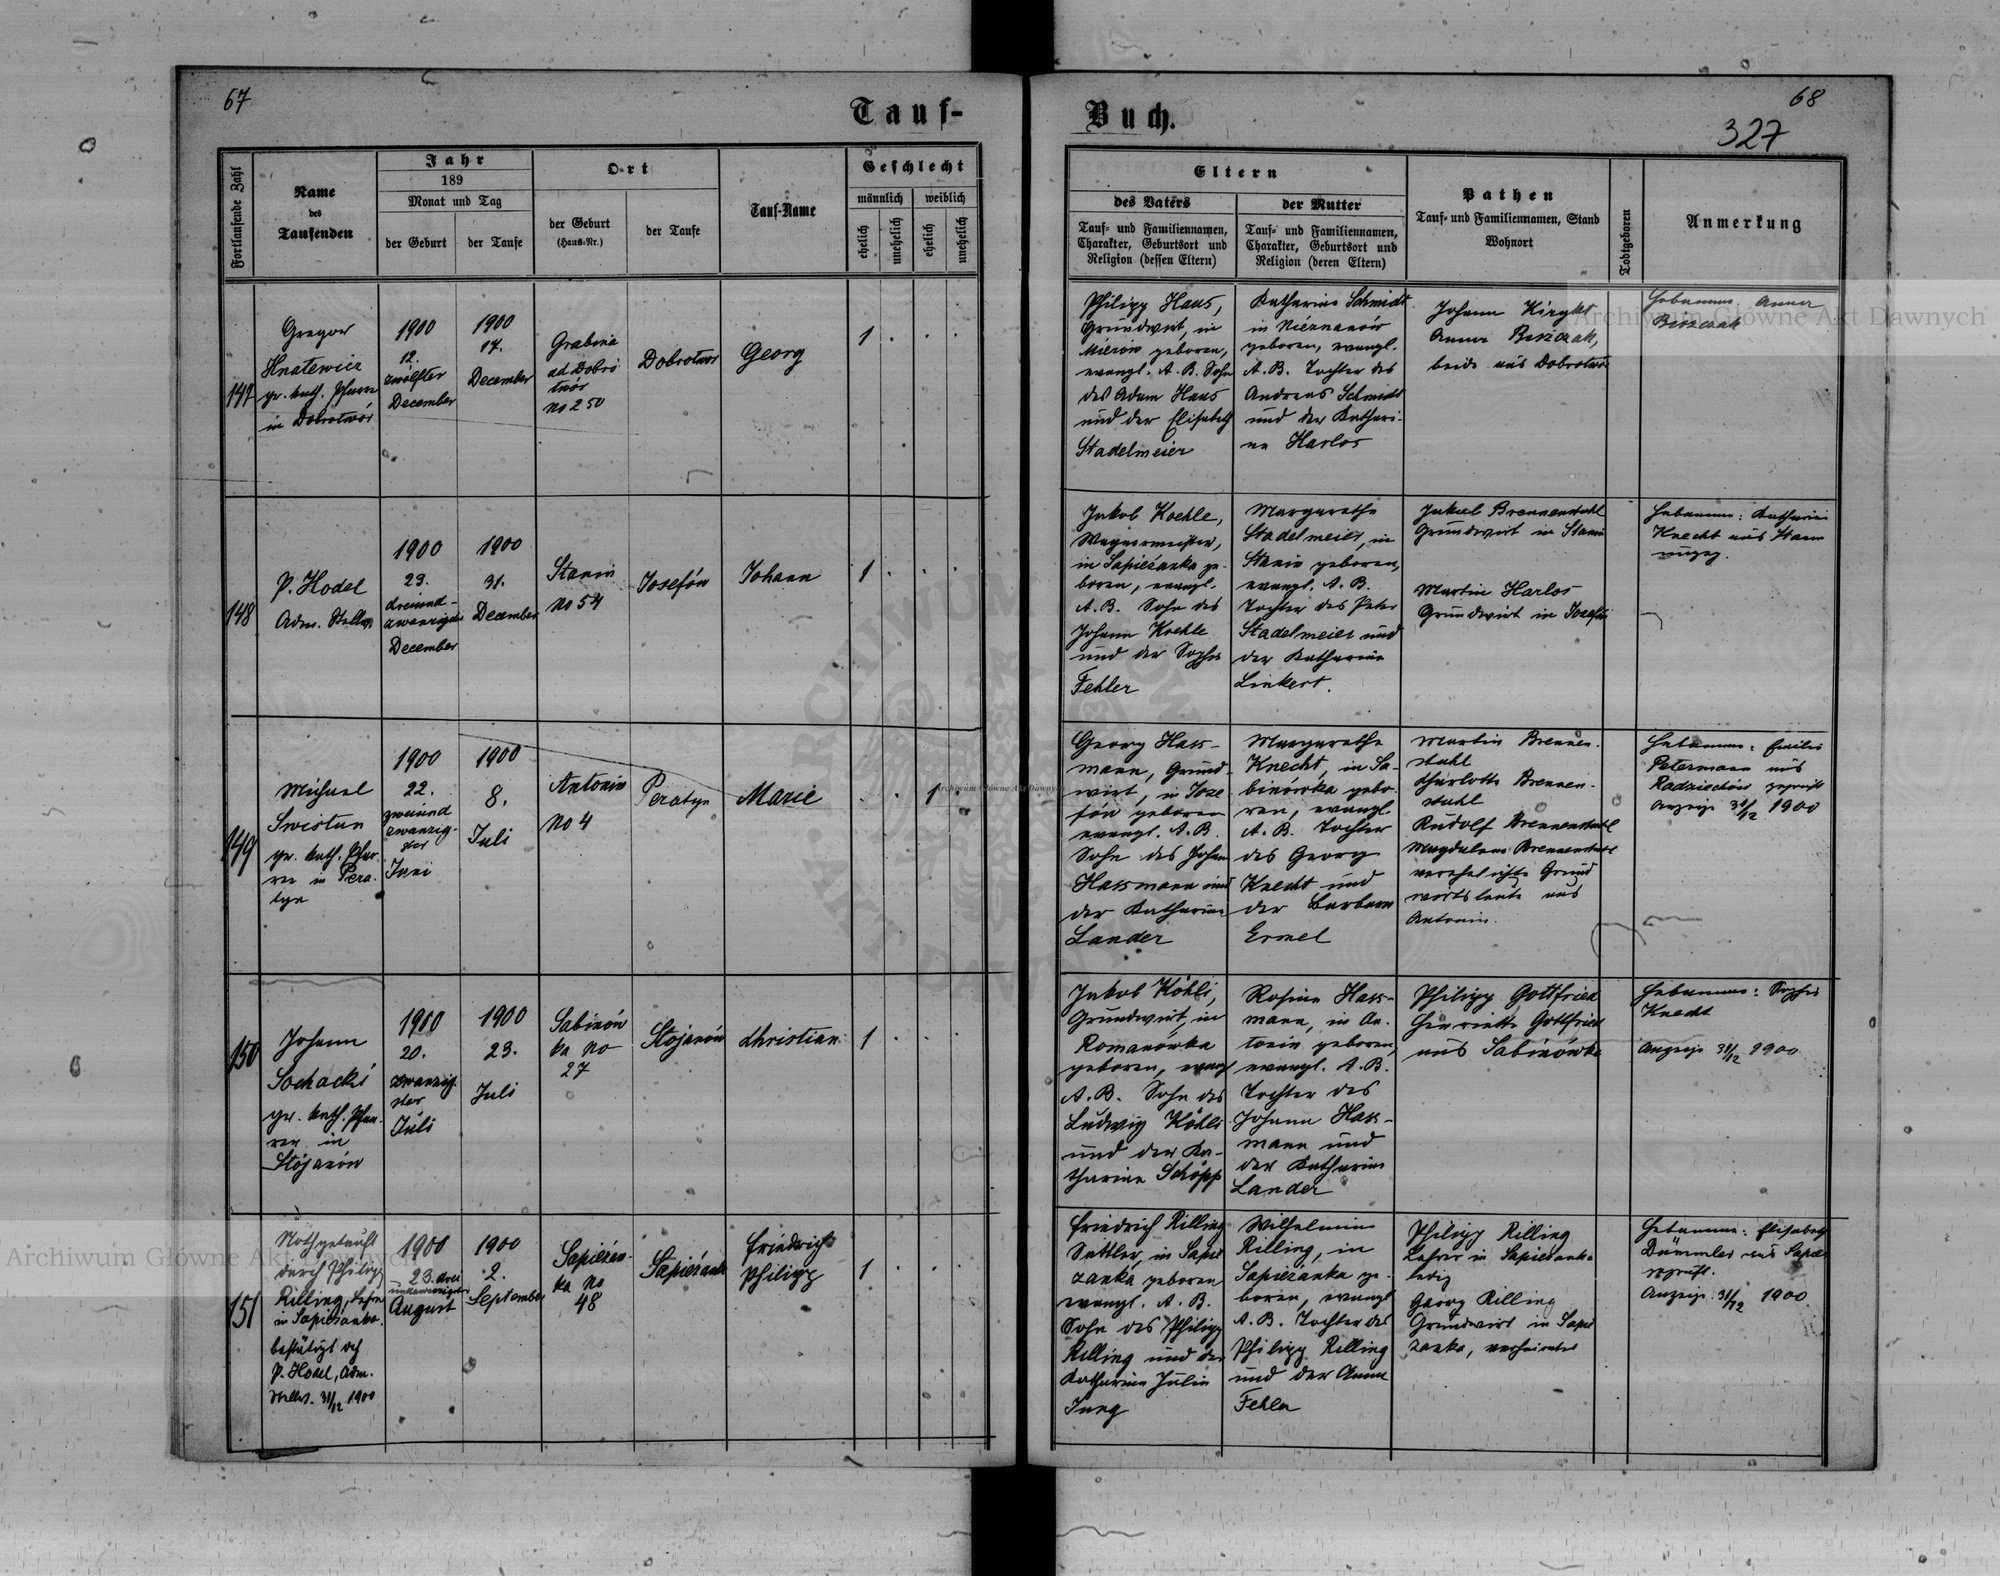 67
Tauf-
Fortlaufende Zahl
Name
des
Taufenden
Jahr
189
Monat und Tag
der Geburt
der Taufe
Ort
der Geburt
(Haus-Nr.)
der Taufe
Tauf-Name
Geschlecht
männlich
weiblich
ehelich
unehelich
ehelich
unehelich
147
Gregor
Hnatewicz
gr. kath. Pfarrer
in Dobrotwór
1900
12.
zwölfter
December
1900
17.
December
Grabina
ad Dobro
twór
No 250
Dobrotwor
Georg
1
148
P. Hodel
Adm. Stellv.
1900
23.
dreiund-
zwanzigster
December
1900
31.
December
Stanin
No 54
Josefów
Johann
1
149
Michael
Swistun
gr. kath. Pfar-
rer in Pera-
tyn
1900
22.
zweiund
zwanzig-
ster
Juni
1900
8.
Juli
Antonin
No 4
Peratyn
Marie
1
150
Johann
Sochacki
gr. kath. Pfar-
rer in
Stojanów
1900
20.
zwanzig-
ster
Juli
1900
23.
Juli
Sabinów
ka No
27
Stojanów
Christian
1
151
Nothgetauft
durch Philipp
Rilling, Lehrer
in Sapiezanka.
bestätigt
P. Hodel, Adm.
Stellv. 31/12 1900
1900
23. drei
undzwanzigster
August
1900
2.
September
Sapiezan-
ka No
48
Sapiezanka
Friedrich
Philipp
1
Buch.
68
327
Eltern
des Vaters
Tauf- und Familiennamen,
Charakter, Geburtsort und
Religion (dessen Eltern)
der Mutter
Tauf- und Familiennamen,
Charakter, Geburtsort und
Religion (deren Eltern)
Pathen
Tauf- und Familiennamen, Stand
Wohnort
Todtgeboren
Anmerkung
Philipp Haus,
Grundwirt, in
Mierów geboren,
evangl. A. B. Sohn
des Adam Haus
und der Elisabeth
Stadelmeier
Katharina Schmidt
in Nieznanów
geboren, evangl.
A. B. Tochter des
Andreas Schmidt
und der Kathari-
na Harlos
Johann
Anna Beszczak,
beide aus Dobrotwór
Hebamme: Anna
Beszczak
Jakob Koehle,
Wagnermeister,
in Sapiezanka ge-
boren, evangl.
A. B. Sohn des
Johann Koehle
und der Sophie
Fehler
Margarethe
Stadelmeier, in
Stanin geboren,
evangl. A. B.
Tochter des Peter
Stadelmeier und
der Katharina
Linkert.
Jakob Brennenstuhl
Grundwirt in Stanin
Martin Harlos
Grundwirt in Josefów
Hebamme: Katharina
Knecht aus Stanin
Georg Hass-
mann, Grund-
wirt, in Jose
fów geboren
evangl. A. B.
Sohn des Johann
Hassmann und
der Katharina
Lander
Margarethe
Knecht, in Sa-
binówka gebo-
ren, evangl.
A. B. Tochter
des Georg
Knecht und
der Barbara
Ermel
Martin Brennen-
stuhl
Charlotte Brennen-
stuhl
Rudolf Brennenstuhl
Magdalena Brennenstuhl
verehelichte Grund
wirtsleute aus
Antonin.
Hebamme: Emilie
Petermann aus
Radziechów geprüft
Anzeige 31/12 1900
Jakob Köhli,
Grundwirt, in
Romanówka
geboren, evangl
A. B. Sohn des
Ludwig Köhli
und der Ka-
tharina Schöpp
Rosina Hass-
mann, in An-
tonin geboren,
evangl. A. B.
Tochter des
Johann Hass-
mann und
der Katharina
Lander
Philipp Gottfried
Henriette Gottfried
aus Sabinówka
Hebamme: Sophie
Knecht
Anzeige 31/12 1900
Friedrich Rilling
Sattler, in Sapie
zanka geboren
evangl. A. B.
Sohn des Philipp
Rilling und der
Katharina Julia
Jung
Wilhelmine
Rilling, in
Sapiezanka ge-
boren, evangl
A. B. Tochter des
Philipp Rilling
und der Anna
Fehler
Philipp Rilling
Lehrer in Sapiezanka
ledig
Georg Rilling
Grundwirt in Sapie
zanka, verheiratet
Hebamme: Elisabeth
Dümmler aus Sapie
geprüft.
Anzeige 31/12 1900
Archiwum Główne Akt Dawnych
Archiwum Główne Akt Dawnych
Archiwum Główne Akt Dawnych